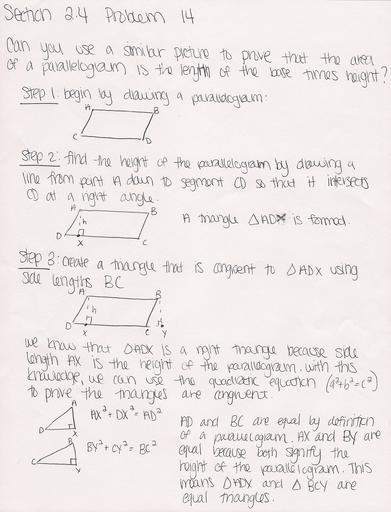 Section 2.4 Problem 14
Can you use a similar picture to prove that the area
of a parallelogram is the length of the base times height?
Step 1: begin by drawing a parallelogram:
A B
C D
Step 2: find the height of the parallelogram by drawing a
line from point A down to segment CD so that it intersects
CD at a right angle.
A B
h
D X C
A triangle △ADX is formed.
Step 3: create a triangle that is congruent to △ADX using
side lengths BC
A B
h
D X C Y
we know that △ADX is a right triangle because side
length AX is the height of the parallelogram. with this
knowledge, we can use the quadratic equation (a²+b²=c²)
to prove the triangles are congruent.
A
D X
AX² + DX² = AD²
B
C Y
BY² + CY² = BC²
AD and BC are equal by definition
of a parallelogram. AX and BY are
equal because both signify the
height of the parallelogram. This
means △ADX and △ BCY are
equal triangles.